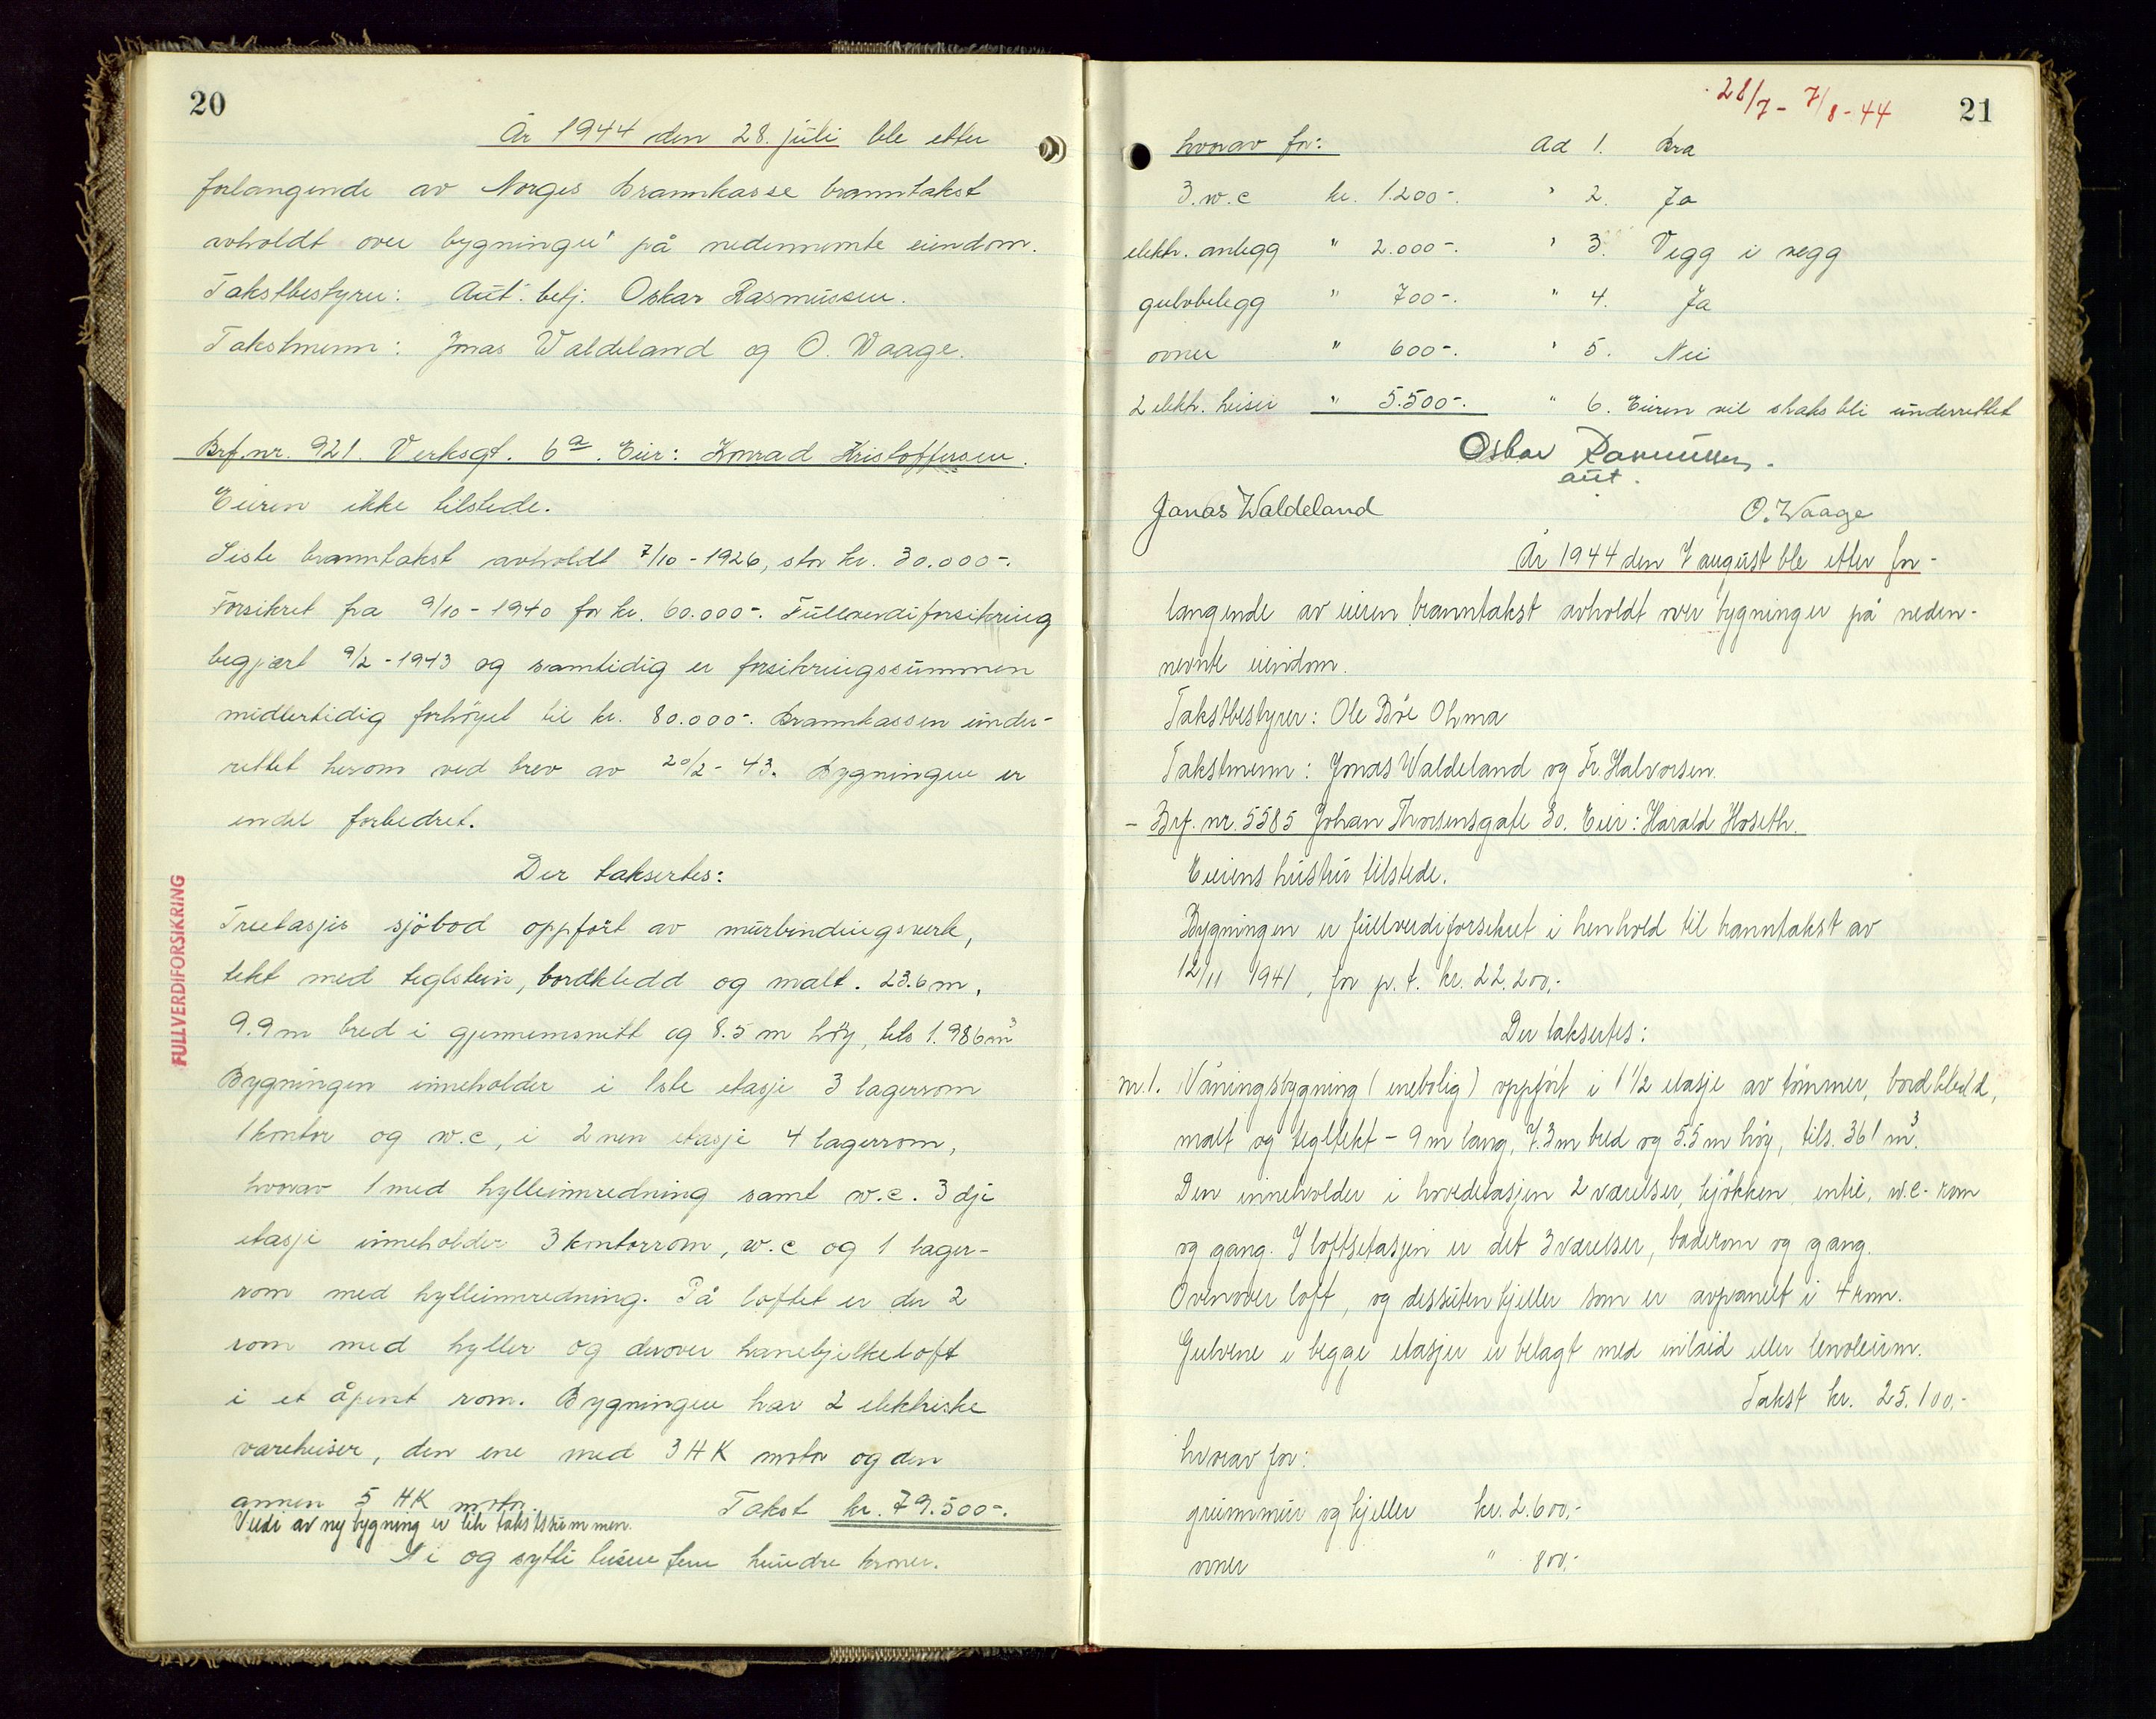 20
År 1944 den 28. juli ble etter
forlangende av Norges Brannkasse branntakst
avholdt over bygninger på nedennevnte eiendom.
Takstbestyrer: Aut. betj. Oskar Rasmussen.
Takstmenn: Jonas Waldeland og O. Waage.
Brf. nr. 921. Verksgt. 6a. Eier: Konrad Kristoffersen.
Eieren ikke tilstede.
Siste branntakst avholdt 7/10-1926, stor kr. 30.000-.
Forsikret fra 9/10-1940 for kr. 60.000-. Fullverdiforsikring
begjært 9/2-1943 og samtidig er forsikringssummen
midlertidig forhöyet til kr. 80.000-. Brannkassen under-
rettet herom ved brev av 20/2-43. Bygningen er
endel forbedret.
Der taksertes:
FULLVERDIFORSIKRING
Treetasjes sjöbod oppfört av murbindingsverk,
tekt med teglstein, bordkledd og malt. 23.6 m,
9.9 m bred i gjennemsnitt og 8.5 m höy, tils 1.986 m³
Bygningen inneholder i 1ste etasje 3 lagerrom
1 kontor og w.c, i 2nen etasje 4 lagerrom,
hvorav 1 med hylleinnredning samt w.c. 3dje
etasje inneholder 3 kontorrom, w.c og 1 lager-
rom med hylleinnredning. På loftet er der 2
rom med hyller og derover hanebjelkeloft
i et åpent rom. Bygningen har 2 elektriske
vareheiser, den ene med 3 HK motor og den
annen 5 HK motor. Takst kr. 79.500-.
Verdi av ny bygning er lik takstsummen.
Ni og sytti tusen fem hundre kroner.
28/7 - 7/8-44 21
hvorav for: Ad 1. Bra
3 w.c kr. 1.200-. " 2. Ja
elektr. anlegg " 2.000-. " 3. Vegg i vegg
gulvbelegg " 700-. " 4. Ja
ovner " 600-. " 5. Nei
2 elektr. heiser " 5.500-. " 6. Eieren vil straks bli underrettet
Oskar Rasmussen.
aut.
Jonas Waldeland O. Waage
År 1944 den 7 august ble etter for-
langende av eieren branntakst avholdt over bygninger på neden-
nevnte eiendom.
Takstbestyrer: Ole Böe Ohma
Takstmenn: Jonas Waldeland og Fr. Halvorsen.
- Brf. nr. 5585 Johan Thorsensgate 30. Eier: Harald Hoseth.
Eierens hustru tilstede.
Bygningen er fullverdiforsikret i henhold til branntakst av
12/11 1941, for p.t. kr. 22.200,-
Der taksertes:
nr. 1. Våningsbygning (enebolig) oppfört i 1 1/2 etasje av tömmer, bordkledd,
malt og tegltekt - 9 m lang, 7.3 m bred og 5.5 m höy, tils. 361 m³.
Den inneholder i hovedetasjen 2 værelser, kjökken, entré, w.c-rom
og gang. I loftsetasjen er det 3 værelser, baderom og gang.
Ovenover loft, og dessuten kjeller som er avpanelt i 4 rom.
Gulvene i begge etasjer er belagt med inlaid eller lenoleum.
Takst kr. 25.100,-
hvorav for:
grunnmur og kjeller kr. 2.600,-
ovner " 800,-